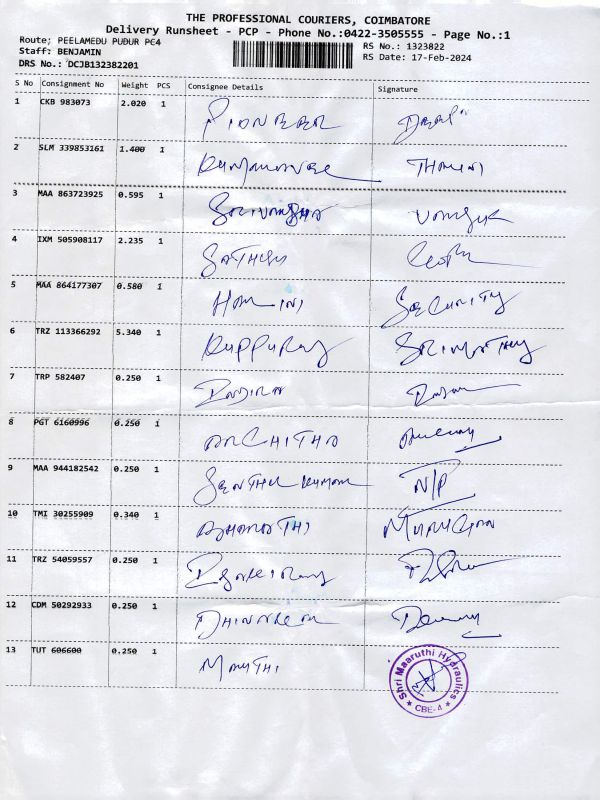 THE PROFESSIONAL COURIERS, COIMBATORE
Delivery Runsheet - PCP - Phone No.:0422-3505555 - Page No.:1
Route; PEELAMEDU PUDUR PC4
RS No.: 1323822
Staff: BENJAMIN
RS Date: 17-Feb-2024
DRS No.: DCJB132382201
S No Consignment No Weight PCS Consignee Details Signature
1 CKB 983073 2.020 1 PIONEER
2 SLM 339853161 1.400 1
3 MAA 863723925 0.595 1
4 IXM 505908117 2.235 1 SATHISH
5 MAA 864177307 0.580 1 SECURITY
6 TRZ 113366292 5.340 1 KUPPURAJ
7 TRP 582407 0.250 1
8 PGT 6160996 0.250 1 ARCHITHA
9 MAA 944182542 0.250 1 SENTHIL KUMAR N/P
10 TMI 30255909 0.340 1 BHARATHI MURUGAN
11 TRZ 54059557 0.250 1
12 CDM 50292933 0.250 1
13 TUT 606600 0.250 1 MARUTHI
Shri Maaruthi Hydraulics
CBE-4